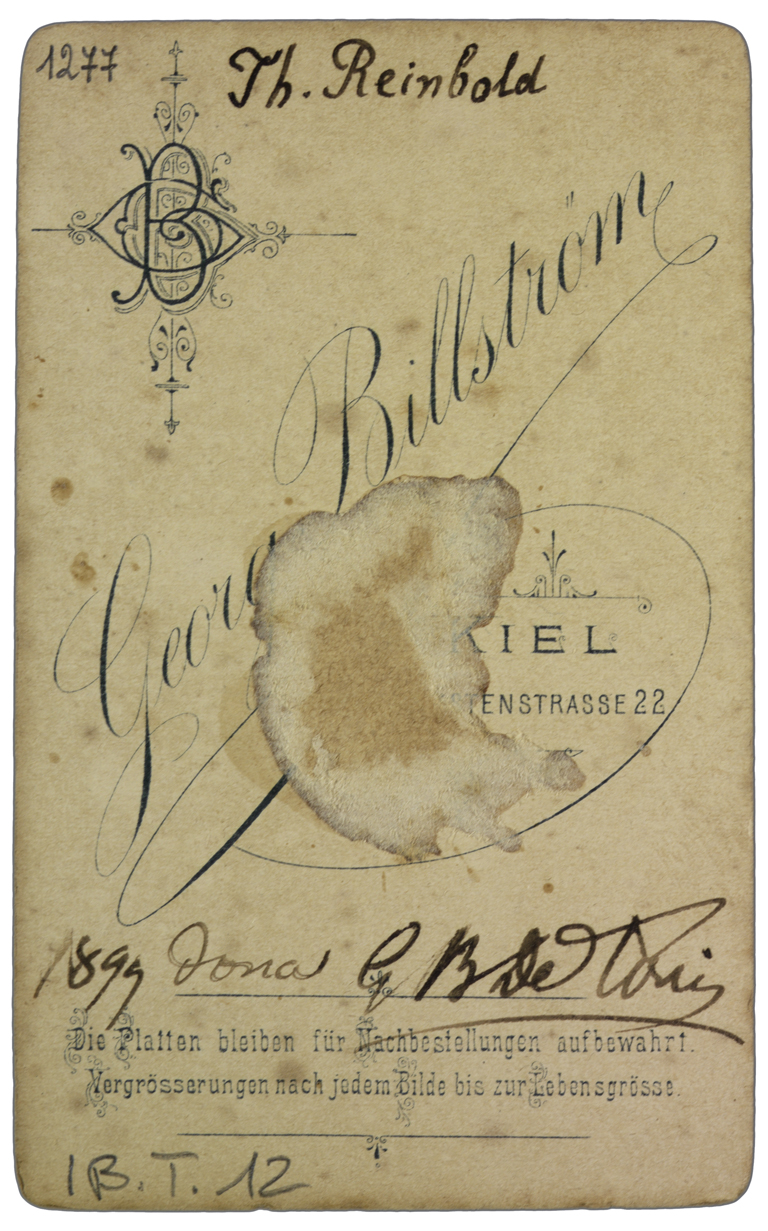 1277
Th. Reinbold
GB
Georg Billström
KIEL
TENSTRASSE 22
1899 Dona G B De Toni
Die Platten bleiben für Nachbestellungen aufbewahrt.
Vergrösserungen nach jedem Bilde bis zur Lebensgrösse.
I B. T. 12